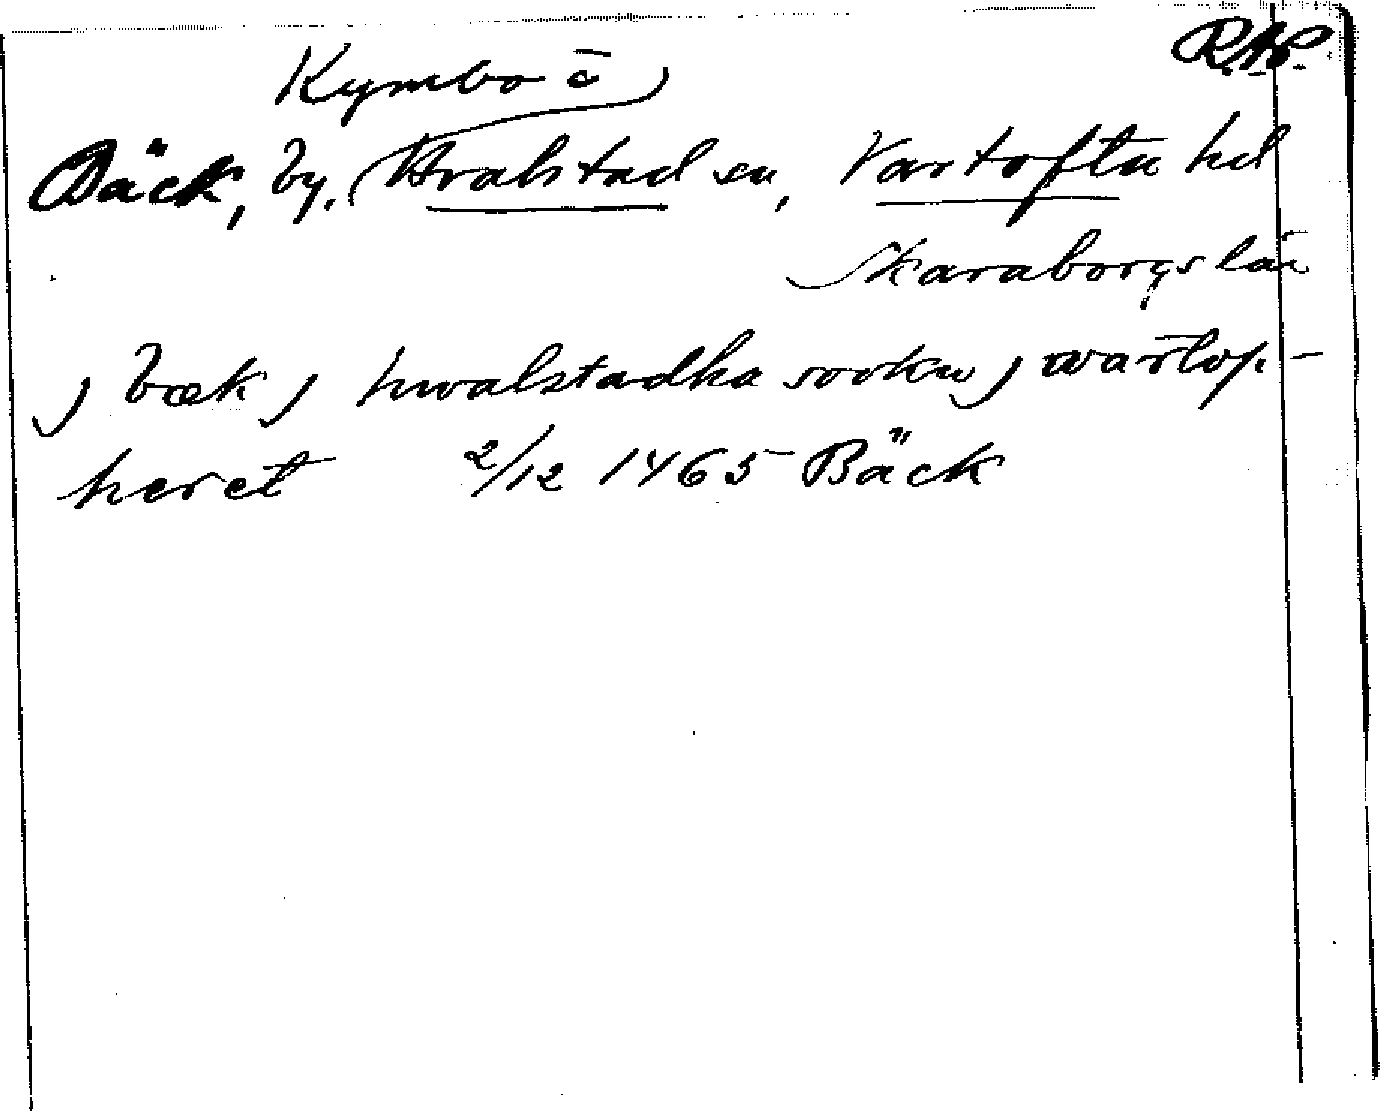 RAP.
Kymbo ō
Bäck, by, Hvalstad sn, Vartofta hd
Skaraborgs län
j bæk j hwalstadha sookn j wartop-
heret 2/12 1465 Bäck